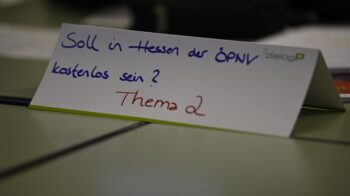 Soll in Hessen der ÖPNV
kostenlos sein?
Thema 2
dialogP